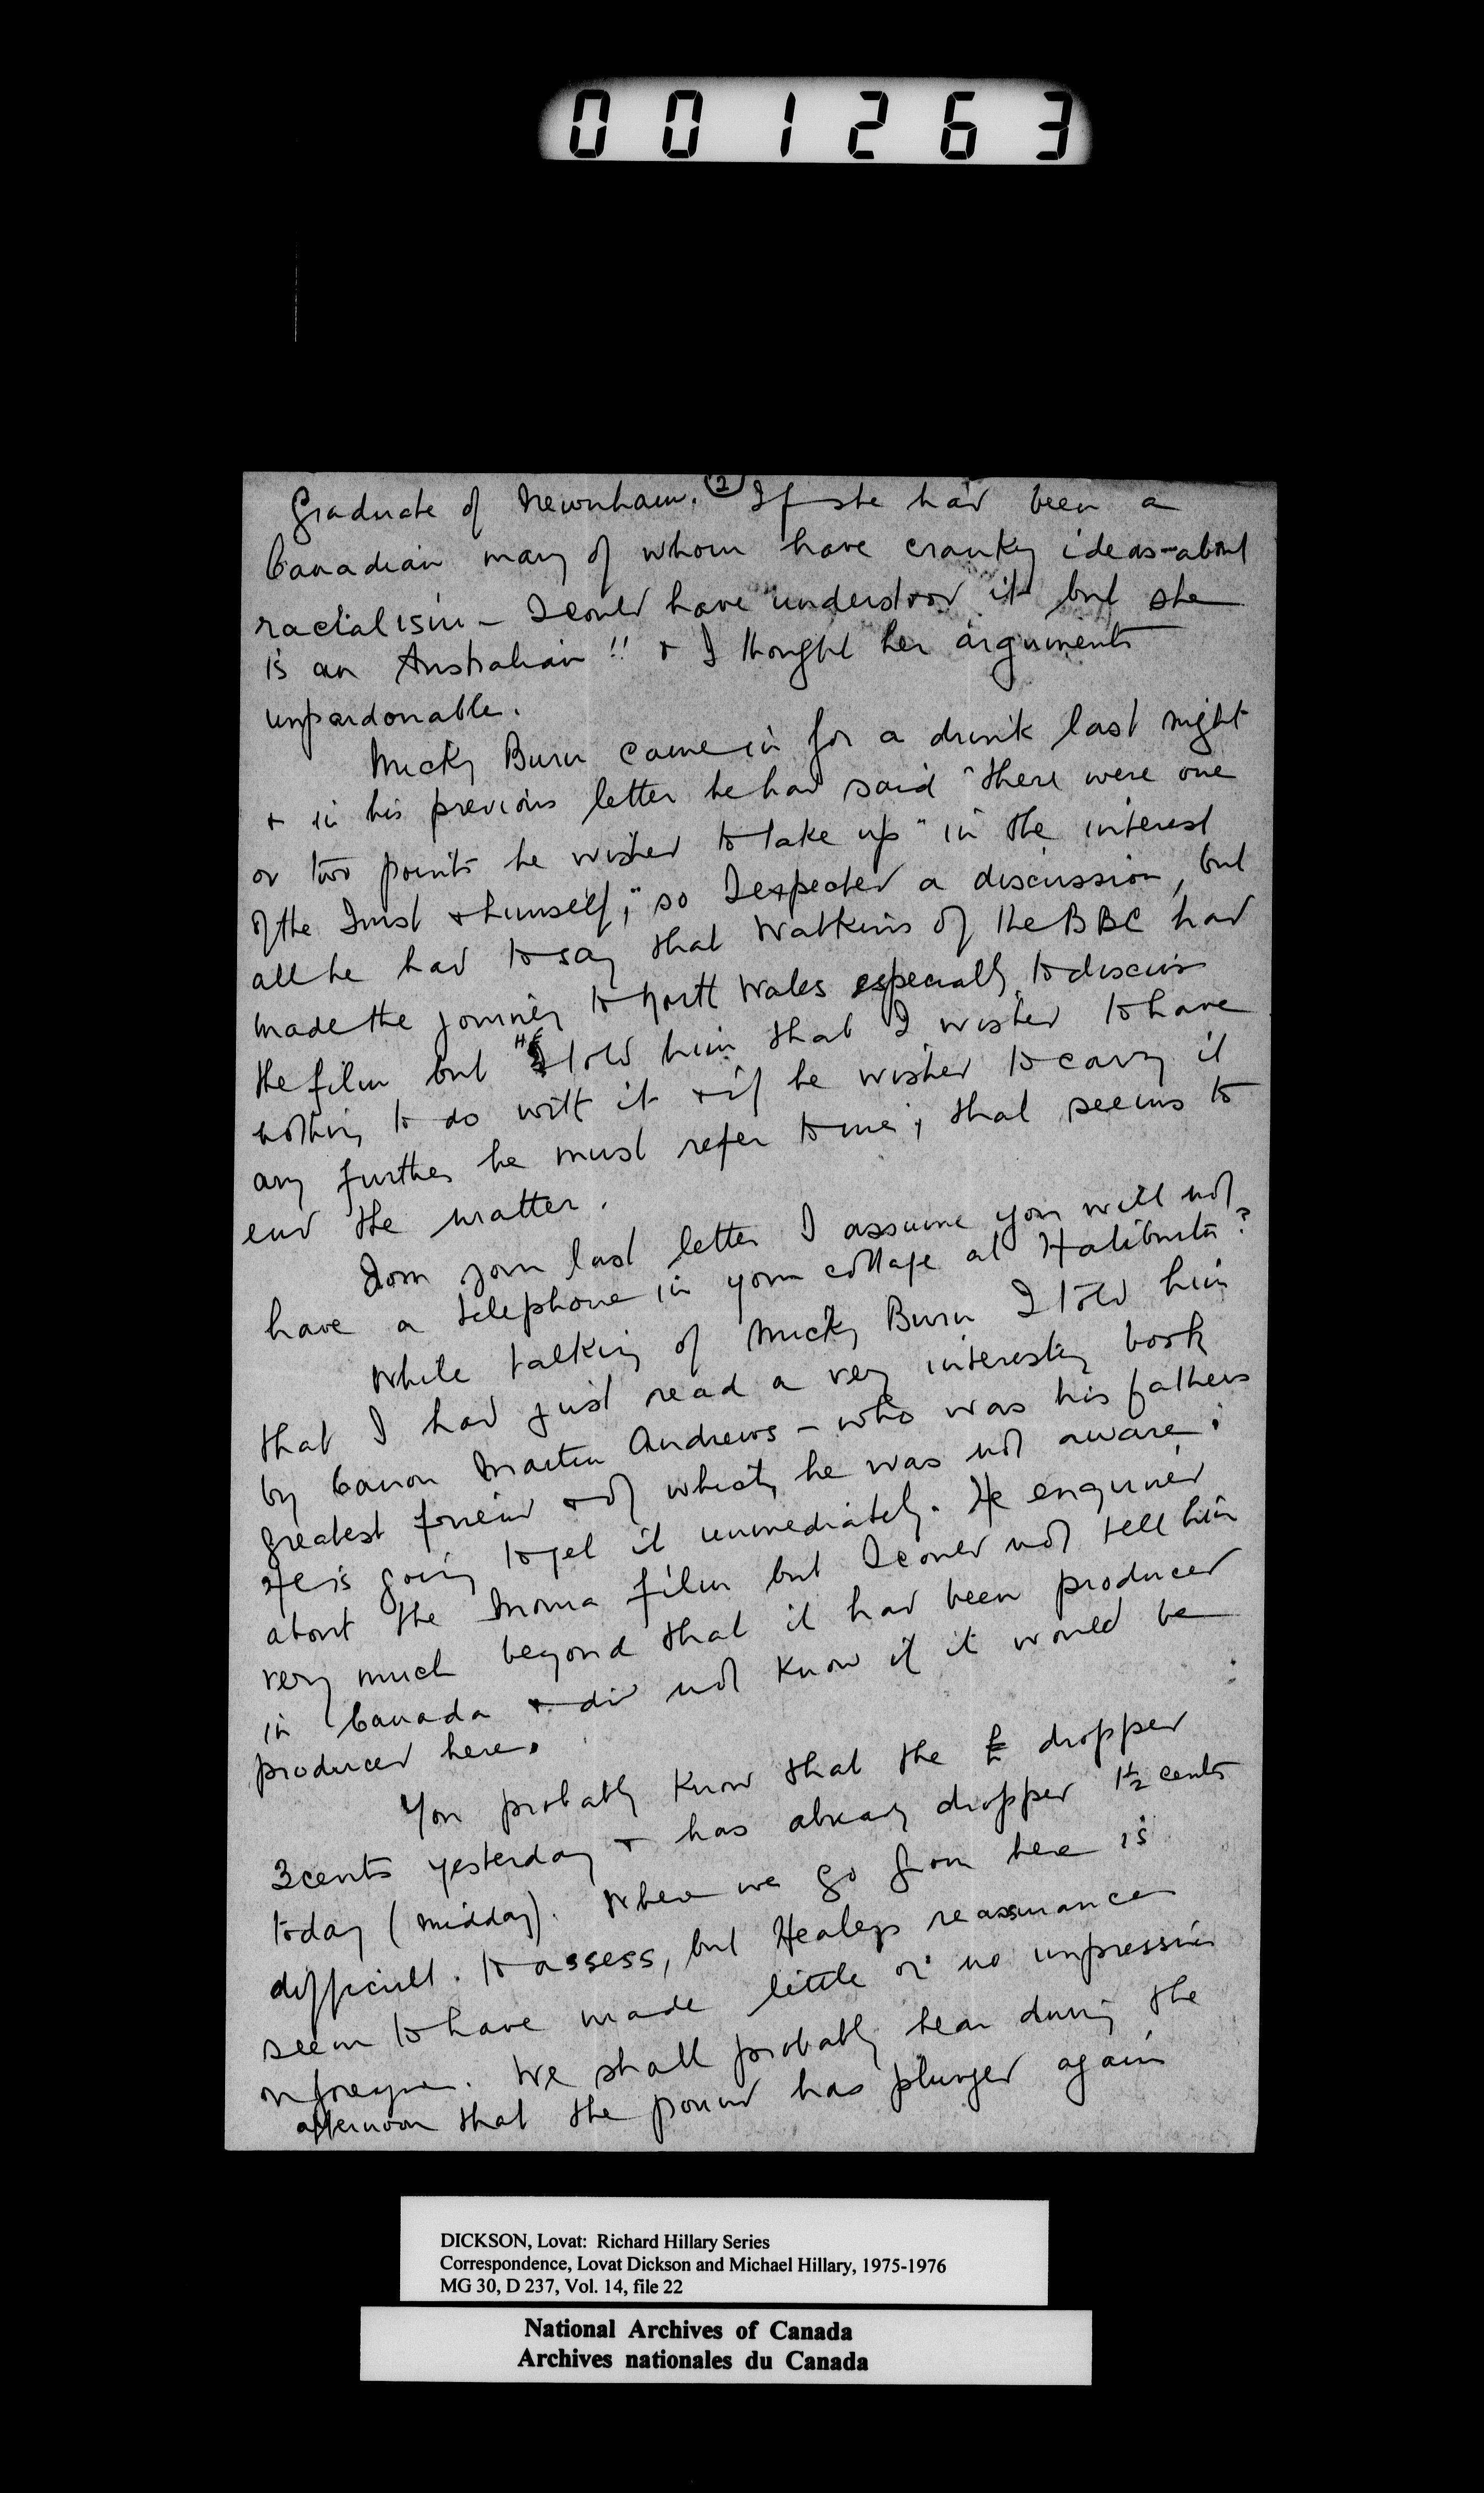 001263
(2)
Graduate of Newnham. If she had been a
Canadian many of whom have cranky ideas about
racialism – I could have understood it but she
is an Australian!! & I thought her arguments
unpardonable.
Micky Burn came in for a drink last night
& in his previous letter he had said "there were one
or two points he wished to take up" in the interest
of the Trust & himself," so I expected a discussion, but
all he had to say that Watkins of the BBC had
made the journey to North Wales especially to discuss
the film but "HE told him that I wished to have
nothing to do with it & if he wished to carry it
any further he must refer to me; that seems to
end the matter.
From your last letter I assume you will not
have a telephone in your cottage at Haliburton?
While talking of Micky Burn I told him
that I had just read a very interesting book
by Canon Martin Andrews – who was his fathers
greatest friend & of which he was not aware.
He is going to get it immediately. He enquired
about the Moma film but I could not tell him
very much beyond that it had been produced
in Canada & did not know if it would be
produced here.
You probably know that the £ dropped
3 cents yesterday & has already dropped 1½ cents
today (midday). Where we go from here is
difficult to assess, but Healeys reassurances
seem to have made little or no impression
on foreigners. We shall probably hear during the
afternoon that the pound has plunged again
DICKSON, Lovat: Richard Hillary Series
Correspondence, Lovat Dickson and Michael Hillary, 1975-1976
MG 30, D 237, Vol. 14, file 22
National Archives of Canada
Archives nationales du Canada